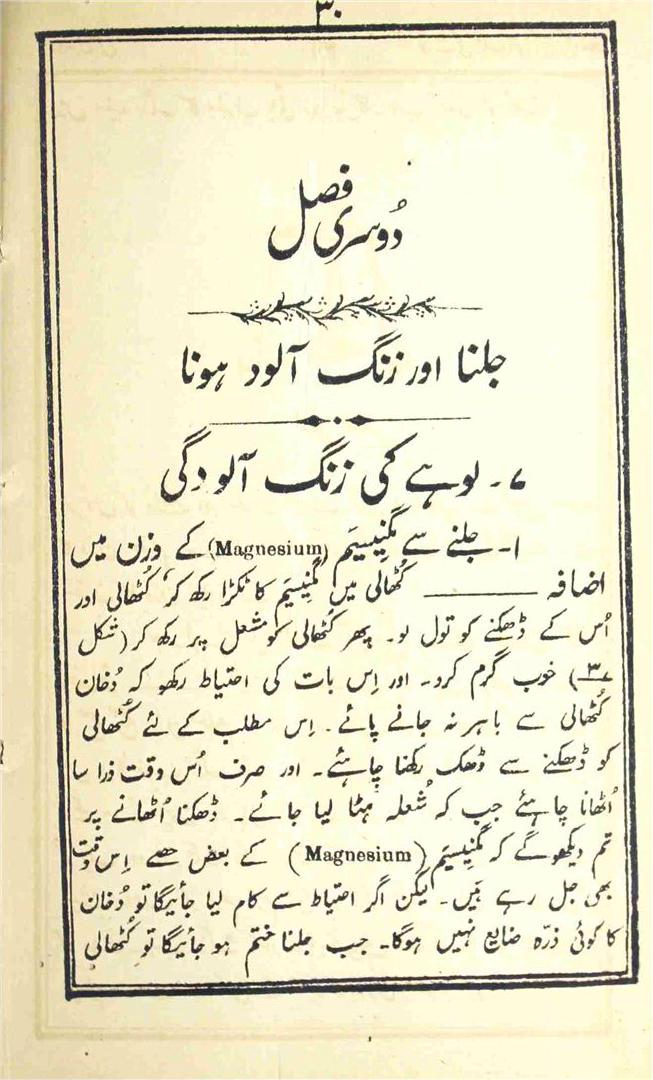 ۳۰
دُوسری فصل
جلنا اور زنگ آلود ہونا
۷۔ لوہے کی زنگ آلودگی
۱۔ جلنے سے مگنیسیَم (Magnesium) کے وزن میں
اضافہ ——— کُٹھالی میں مگنیسیَم کا ٹکڑا رکھ کر کُٹھالی اور
اُس کے ڈھکنے کو تول لو۔ پھر کُٹھالی کو مشعل پر رکھ کر (شکل
۳) خوب گرم کرو۔ اور اِس بات کی احتیاط رکھو کہ دُخان
کُٹھالی سے باہر نہ جانے پائے۔ اِس مطلب کے لئے کُٹھالی
کو ڈھکنے سے ڈھک رکھنا چاہئے۔ اور صرف اُس وقت ذرا سا
اُٹھانا چاہئے جب کہ شُعلہ ہٹا لیا جائے۔ ڈھکنا اُٹھانے پر
تم دیکھوگے کہ مگنیسیَم (Magnesium) کے بعض حصے اِس وقت
بھی جل رہے ہیں۔ لیکن اگر احتیاط سے کام لیا جائیگا تو دُخان
کا کوئی ذرّہ ضایع نہیں ہوگا۔ جب جلنا ختم ہو جائیگا تو کُٹھالی